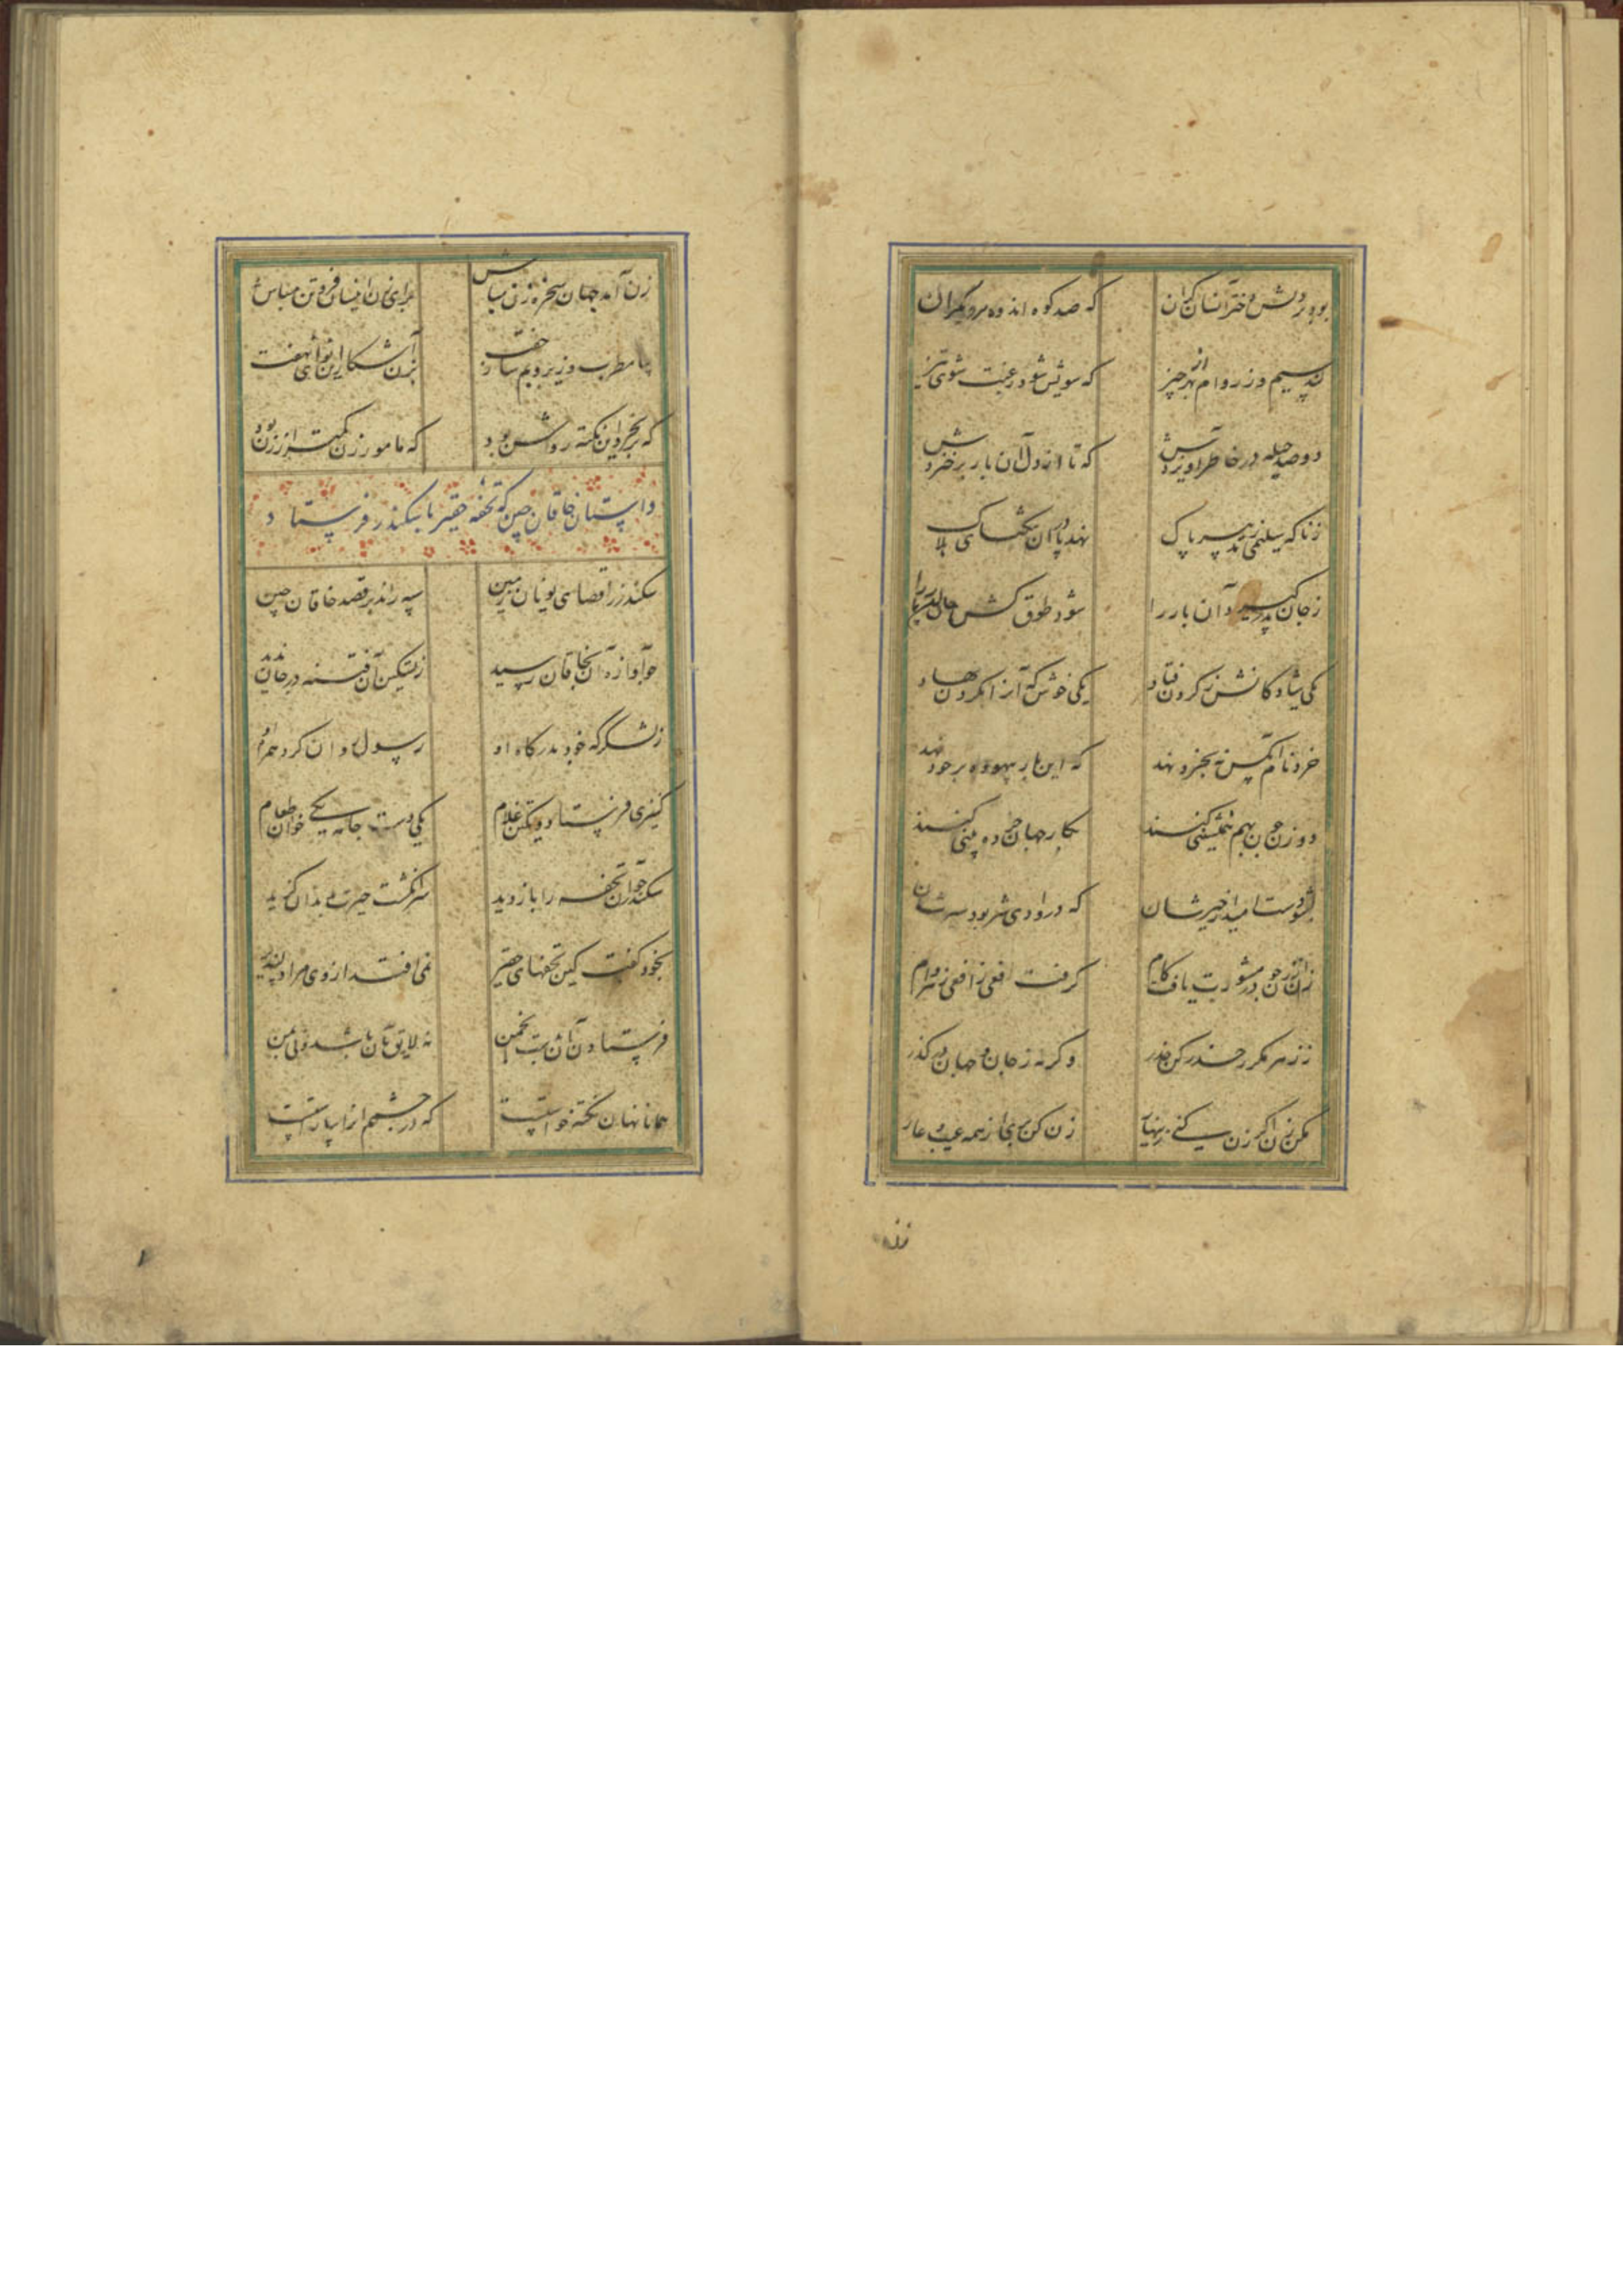 بود بر دلش دختر آنسان گران که صد کوه اندوه بر دیگران
کند سیم و زر وام از بهر چیز که سویش شود رغبت شوی تیز
دو صد حیله در خاطر آویزدش که تا از دل آن بار برخیزدش
نهد پا در آن تنگنای
ز جان گیرد آن بار را شود طوق
یکی شاد کانش ز گردن فتاد یکی خوش که آنرا بگردن نهاد
خرد نام آنکس نه بخرد نهد که این بار بیهوده بر خود نهد
دو زن چون بهم همنشینی کنند بکار جهان خرده بینی کنند
بشو دست امید از خیرشان که در وادی شر بود سیرشان
زن از زن چو در مشورت یافت کام گرفت افعی از افعیی زهر وام
ز زهر مکرر حذر کن حذر وگرنه ز جان و جهان در گذر
مکن زن اگر زن کنی زینهار زنی کن بری از همه عیب و عار
زن
زن آمد جهان سخره زن مباش برای زن اینسان فروتن مباش
بیا مطرب و زیر و بم ساز جفت بزن آشکار این نوای نهفت
که بر بخرد این نکته روشن بود که مامور زن کمتر از زن بود
داستان خاقان چین که تحفه حقیر با سکندر فرستاد
سکندر ز اقصای یونان زمین سپه راند بر قصد خاقان چین
چو آوازه آن بخاقان رسید ز تسکین آن فتنه درمان ندید
ز لشکرگه خود بدرگاه او رسولی روان کرد همراه او
کنیزی فرستاد و یکتن غلام یکی دست جامه یکی خوان طعام
سکندر چو آن تحفه را باز دید سر انگشت حیرت بدندان گزید
بخود گفت کین تحفهای حقیر نمی افتد از وی مرا دلپذیر
فرستادن آن بدین انجمن نه لایق بآن باشد و نی بمن
همانا نهان نکته خواستست که در چشمم آنرا بیاراستست